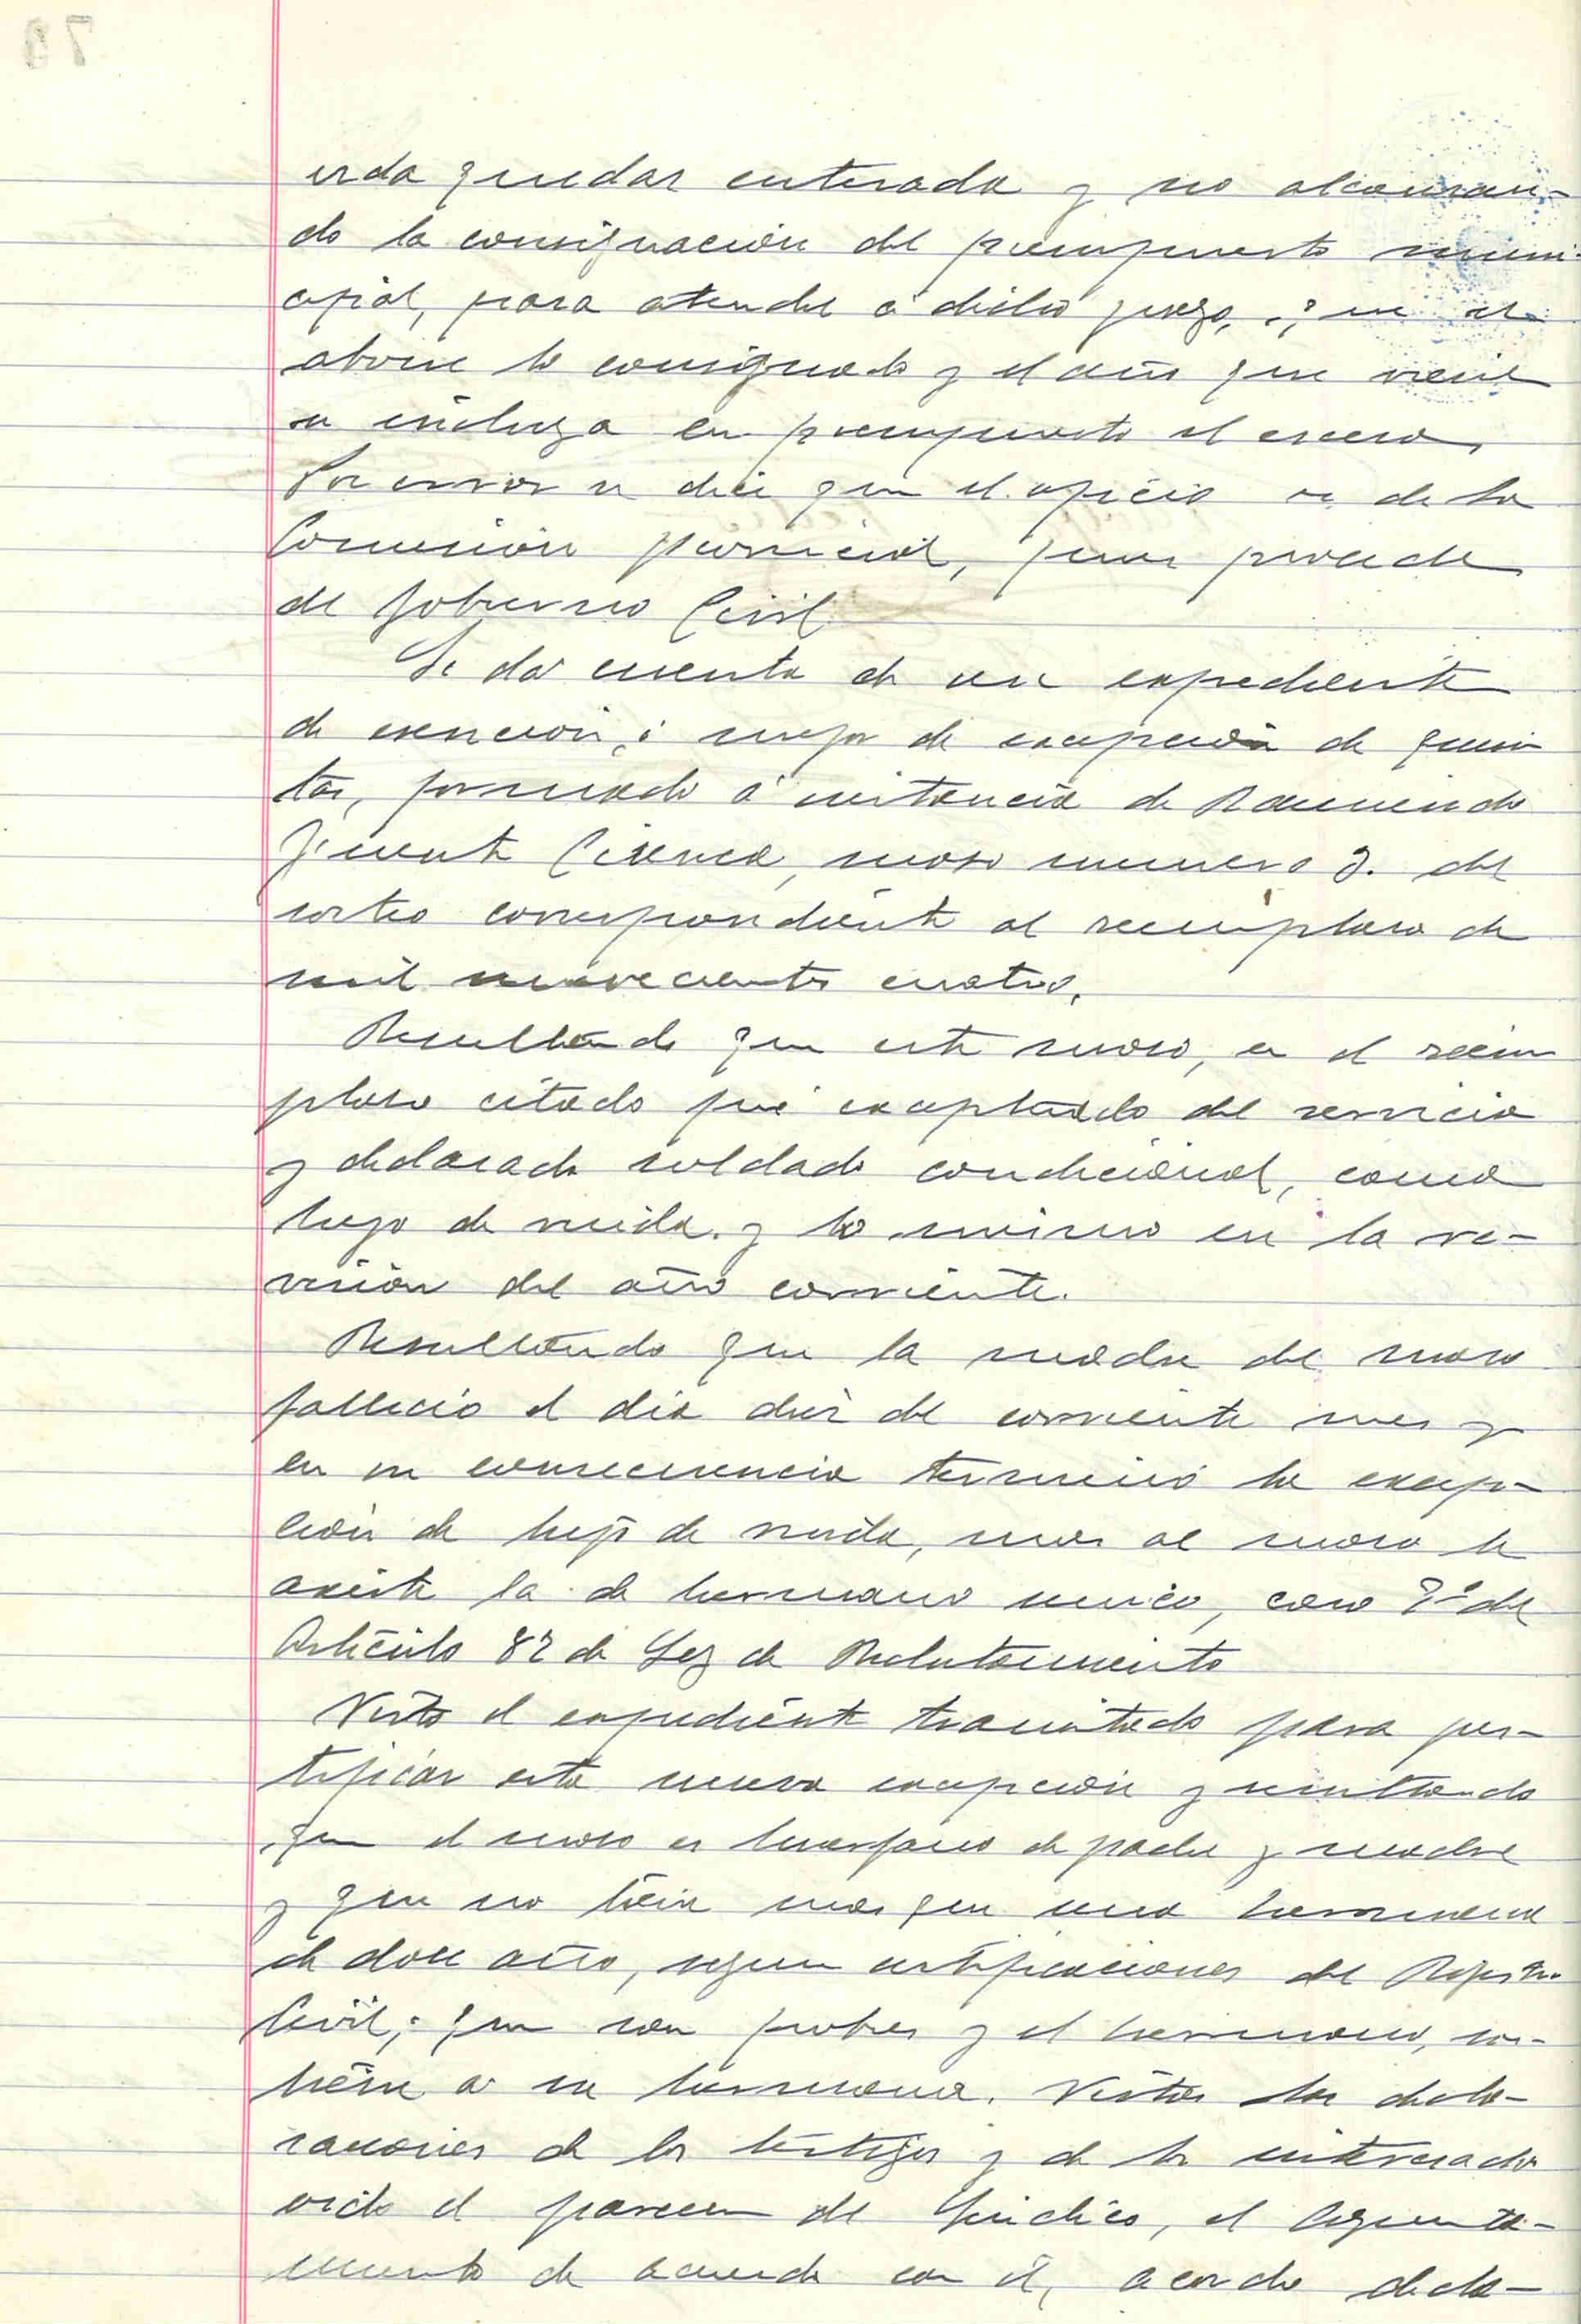 erda quedar enterada y no alcanzan-
do la consignación del presupuesto muni-
cipal, para atender á dicho pago, que se
abone lo consignado y el año que viene
se incluya en presupuesto el exceso.
Por error se dice que el oficio es de la
Comisión provincial, pues procede
del Gobierno Civil
Se da cuenta de un expediente
de exención, ó mejor de excepción de quin
tas, formado á instancia de Raimundo
mozo numero 3. del
sorteo correspondiente al reemplazo de
mil novecientos cuatro.
Resultando que este mozo, en el reem
plazo citado fué exceptuado del servicio
y declarado soldado condicional, como
hijo de viuda. y lo mismo en la re-
visión del año corriente.
Resultando que la madre del mozo
falleció el dia diez del corriente mes y
en su consecuencia terminó la excep-
ción de hijo de viuda, mas al mozo le
asiste la de hermano unico, caso del
Artículo 87 de Ley de Reclutamiento
Visto el expediente tramitado para jus-
tificar esta nueva excepción y resultando
que el mozo es huerfano de padre y madre
y que no tiene mas que una hermana
de doce años, segun certificaciones del Registro
Civil; que son pobres y el hermano, sos-
tiene a su hermana. Vistas las decla-
raciones de los testigos y de los interesados
oido el parecer del Síndico, el Ayunta-
miento de acuerdo con él, acordo decla-